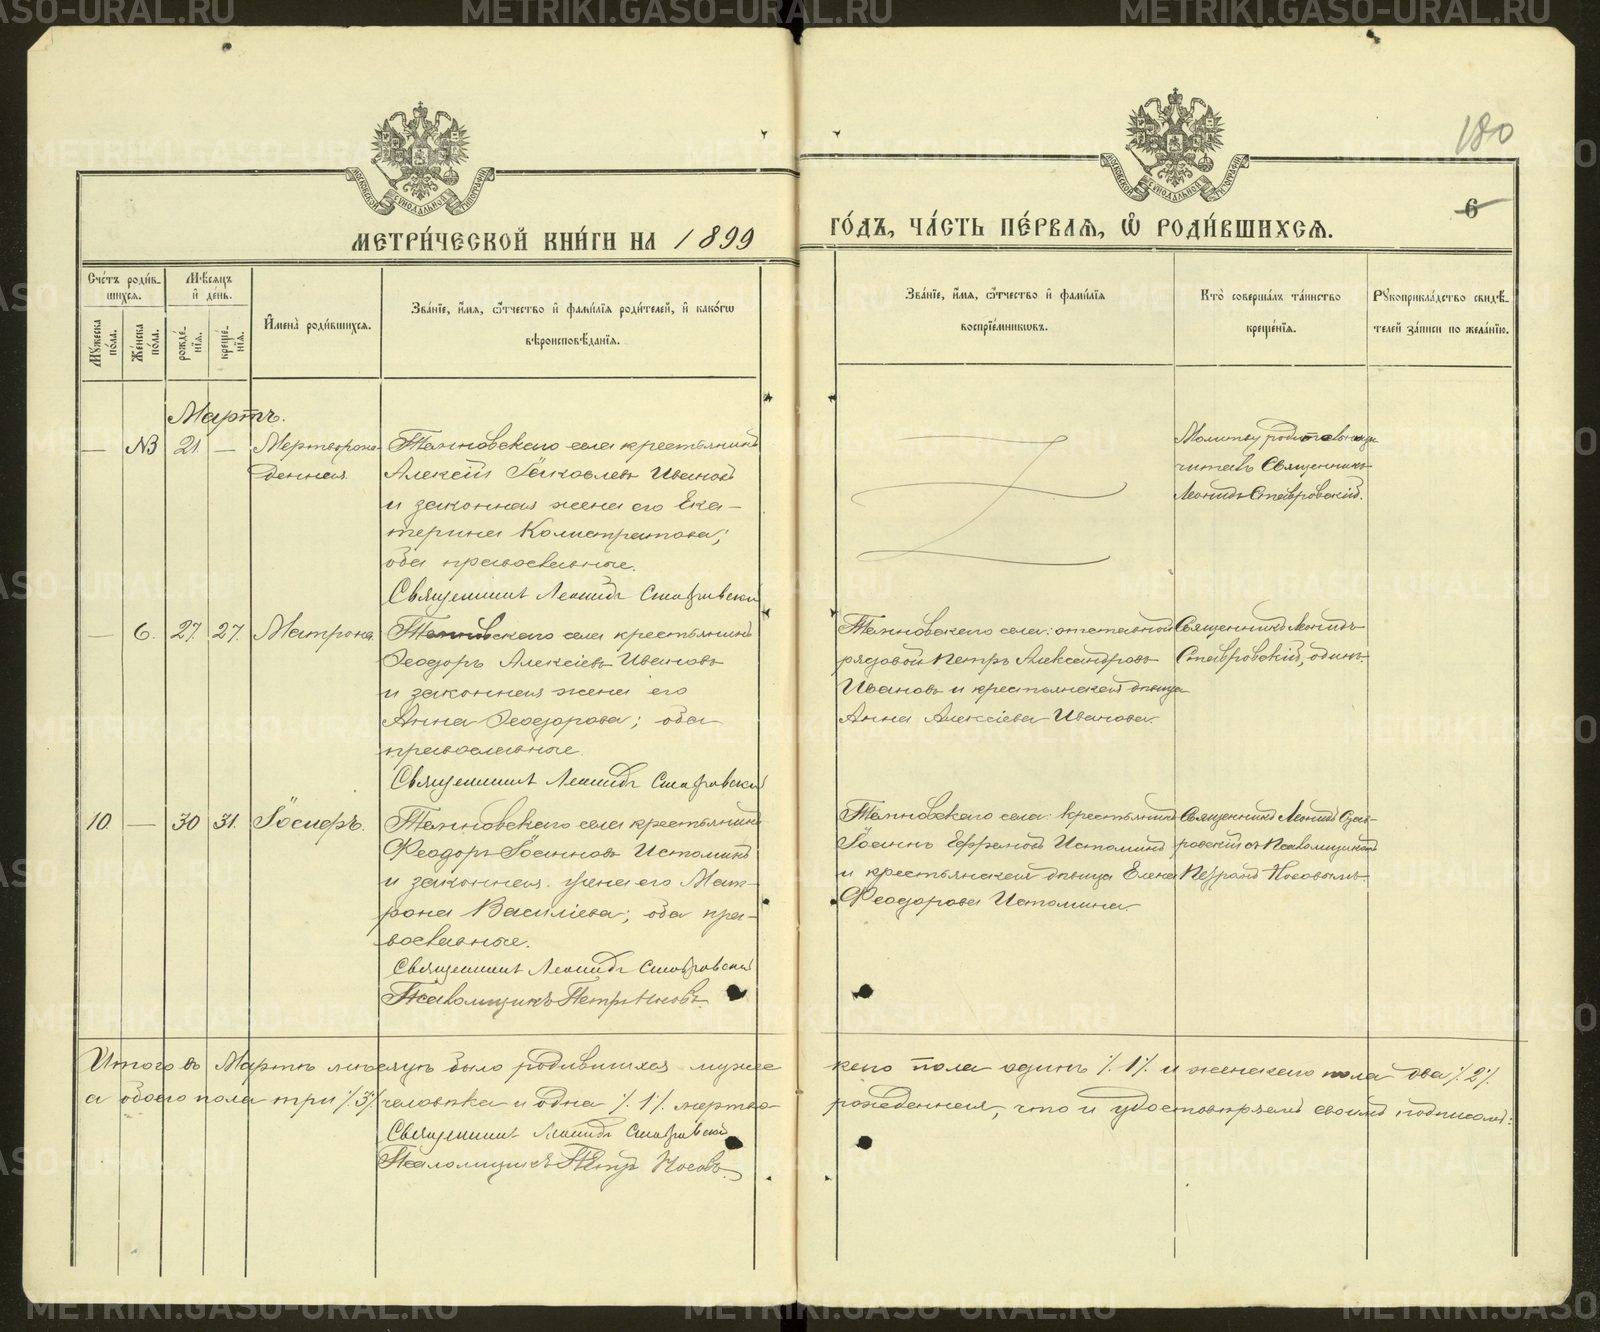 180
6
МОСКОВСКОЙ СѴНОДАЛЬНОЙ ТИПОГРАФІИ
МОСКОВСКОЙ СѴНОДАЛЬНОЙ ТИПОГРАФІИ
МЕТРИ́ЧЕСКОЙ КНИ́ГИ НА 1899
ГО́ДЪ, ЧА́СТЬ ПЕ́РВАѦ, Ѡ҆ РОДИ́ВШИХСѦ.
Сче́тъ роди́в-
шихсѧ.
Му́жеска по́ла.
Же́нска по́ла.
Мѣ́сѧцъ
и҆ де́нь.
рожде́-
нїѧ.
креще́-
нїѧ.
И҆мена̀ роди́вшихсѧ.
Зва́нїе, и҆́мѧ, ѻ҆́тчество и҆ фами́лїѧ роди́телей, и҆ како́гѡ
вѣроисповѣ́данїѧ.
Зва́нїе, и҆́мѧ, ѻ҆́тчество и҆ фами́лїѧ
воспрїе́мникѡвъ.
Кто̀ соверша́лъ та́инство
креще́нїѧ.
Рꙋкоприкла́дство свидѣ́-
телей за́писи по жела́нїю.
Мартъ.
— №3 21 — Мертворож-
денная
село крестьянинъ
Алексѣй Іаковлевъ Ивановъ
и законная жена его Ека-
терина Калистратова;
оба православные.
Священникъ Леонидъ Ставровскій
Молитву родительницѣ
читалъ Священникъ
Леонидъ Ставровскій.
— 6. 27. 27. Матрона
села крестьянинъ
Ѳеодоръ Алексіевъ Ивановъ
и законная жена его
Анна Ѳеодорова; оба
православные.
Священникъ Леонидъ Ставровскій
села: отставной
рядовой Петръ Александровъ
Ивановъ и крестьянская дѣвица
Анна Алексіева Иванова.
Священникъ Леонидъ
Ставровскій, одинъ.
10. — 30 31. Іосифъ.
села крестьянинъ
Ѳеодоръ Іоанновъ Истоминъ
и законная жена его Мат-
рона Василіева; оба пра-
вославные.
Священникъ Леонидъ Ставровскій
Псаломщикъ Петръ Носовъ.
села: крестьянинъ
Іоаннъ Ефремовъ Истоминъ
и крестьянская дѣвица Елена
Ѳеодорова Истомина.
Священникъ Леонидъ Став-
ровскій съ Псаломщикомъ
Петромъ Носовымъ.
Итого въ Мартѣ мѣсяцѣ было родившихся мужес
каго пола одинъ ٪1٪ и женскаго пола два ٪2٪
а обоего пола три ٪3٪ человѣка и одна ٪1٪ мертво-
рожденная, что и удостовѣряемъ своимъ подписомъ:
Священникъ Леонидъ Ставровскій
Псаломщикъ Петръ Носовъ.
METRIKI.GASO-URAL.RU